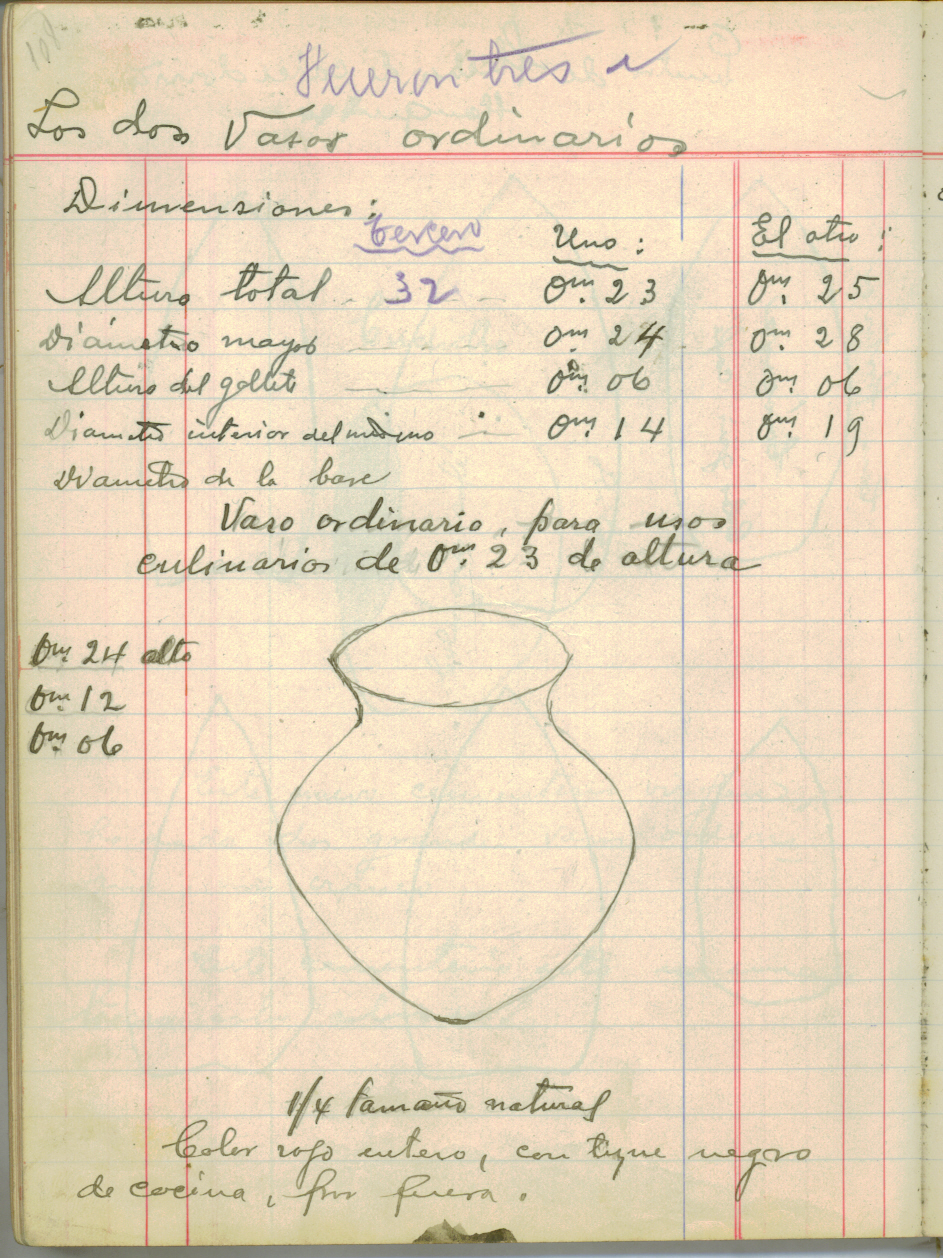 108
Fueron tres
Los dos Vasos ordinarios
Dimensiones:
tercero Uno: El otro:
Altura total 32 0m. 23 0m. 25
Diámetro mayor 0m. 24 0m. 28
Altura del gollete 0m. 06 0m. 06
Diametro interior del mismo 0m. 14 0m. 19
Diametro de la base
Vaso ordinario, para usos
culinarios de 0m. 23 de altura
0m. 24 alto
0m. 12
0m. 06
1/4 tamaño natural
Color rojo entero, con tizne negro
de cocina, por fuera.